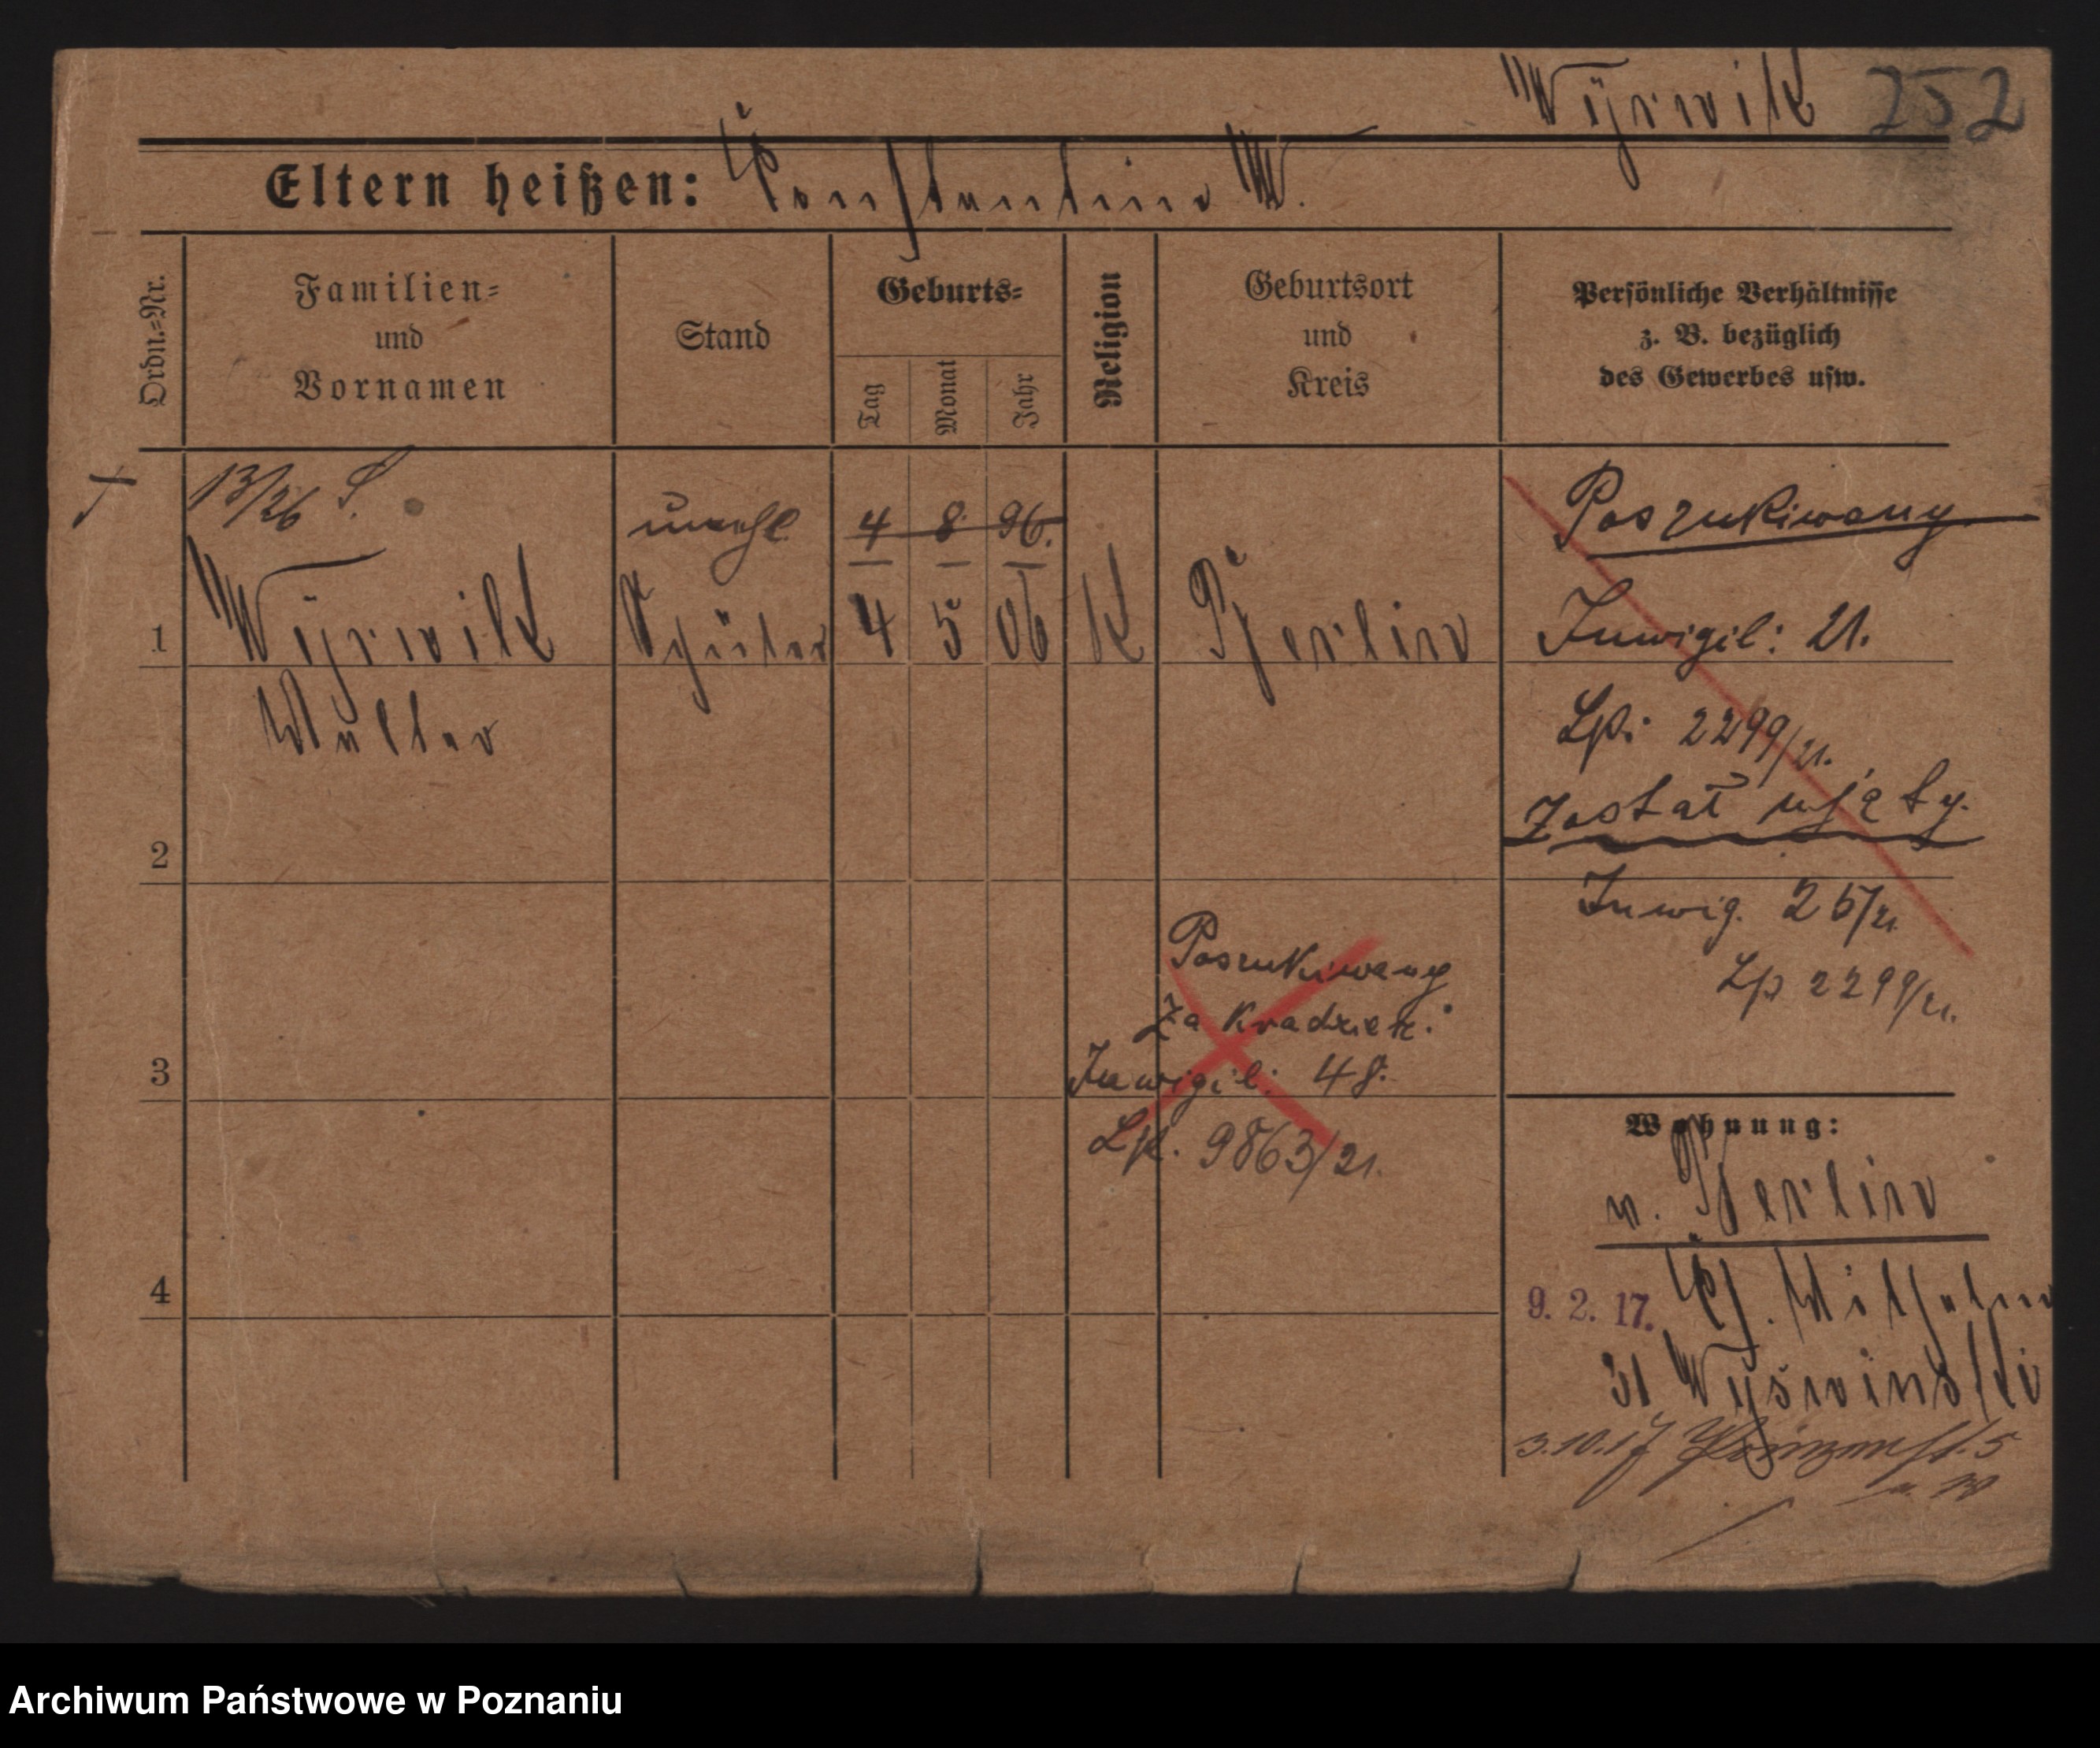 Wyrwik 252
Eltern heißen: Konstantine W.
Ordn.=Nr.
Familien=
und
Vornamen
Stand
Geburts=
Tag
Monat
Jahr
Religion
Geburtsort
und
Kreis
Persönliche Verhältnisse
z. B. bezüglich
des Gewerbes usw.
†
13/26 S.
unehl 4 8 96.
1 Wyrwik Schüler 4 5 06 K Berlin
Walter
Poszukiwany
Inwigil: 21.
Lp: 2299/21.
Został ujęty.
2
Inwig. 26/21
Lp 2299/21.
Poszukiwany
Za kradzież.
3 Inwigil: 48.
Lp. 9863/21.
Wohnung:
v. Berlin
4
9. 2. 17. Wilhelm
31 Wyświnski
3.10.17 5